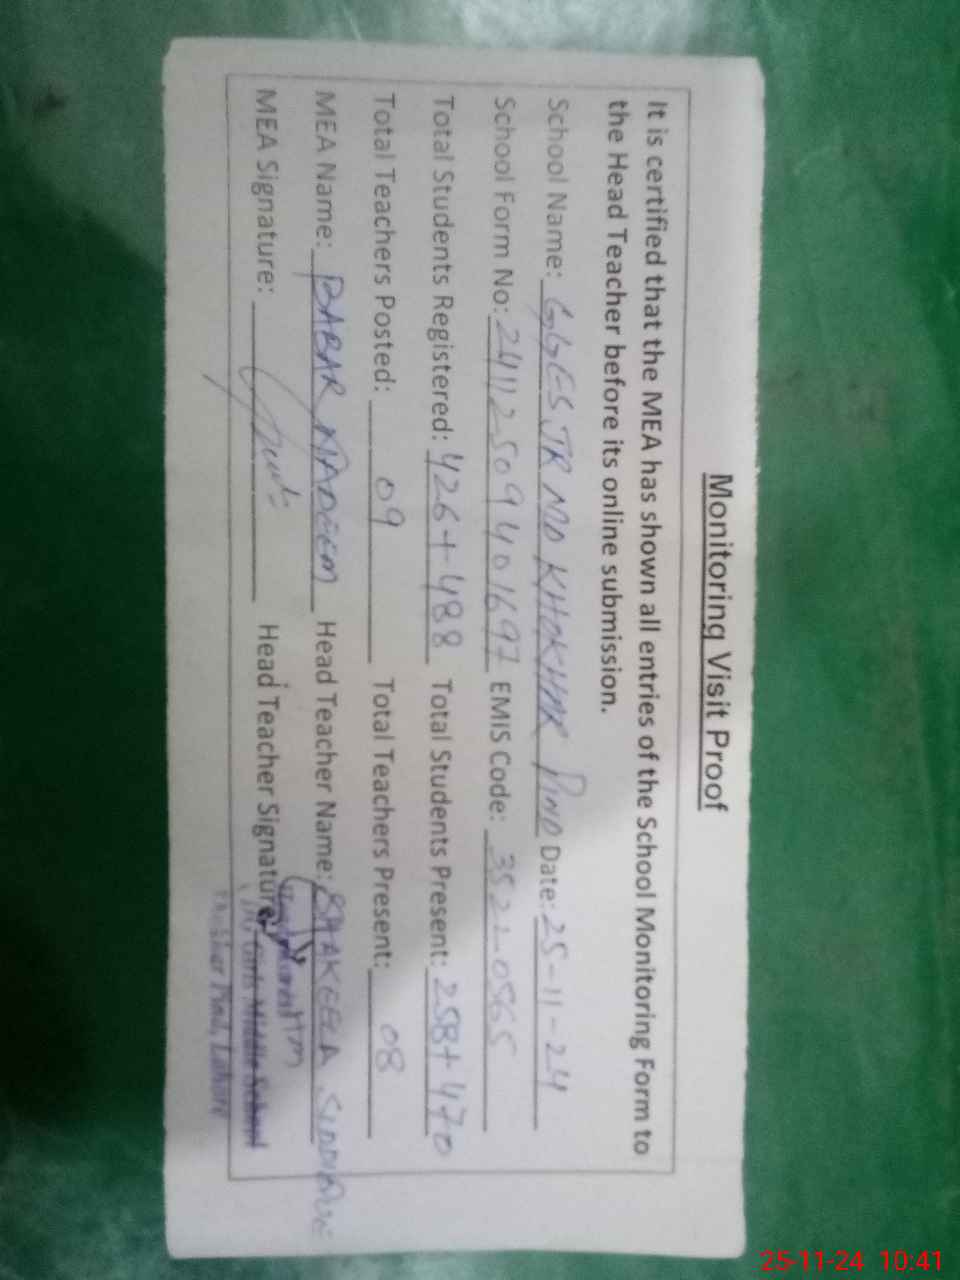 Monitoring Visit Proof
It is certified that the MEA has shown all entries of the School Monitoring Form to
the Head Teacher before its online submission.
School Name: GGES JR MD KHOKHAR PIND Date: 25-11-24
School Form No: 241125094401697 EMIS Code: 3522-0565
Total Students Registered: 426+488 Total Students Present: 258+470
Total Teachers Posted: 09 Total Teachers Present: 08
MEA Name: BABAR NADEEM Head Teacher Name: SHAKEELA SIDDIQUE
MEA Signature: Head Teacher Signature:
Girls Middle School
Pind, Lahore
25-11-24 10:41